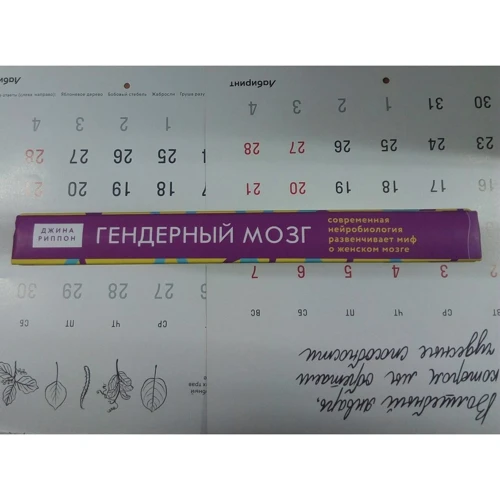 ДЖИНА
РИППОН
ГЕНДЕРНЫЙ МОЗГ
современная
нейробиология
развенчивает миф
о женском мозге
Лабиринт
Яблоневое дерево
Бобовый стебель
Жабросли
Лабиринт
Волшебный январь,
котором мы обретаем
чудесные способности
ВТ СР ЧТ ПТ СБ ВС
2 3 4 5 6 7
16 17 18 19 20 21
23 24 25 26 27 28
30 31 1 2 3 4
СР ЧТ ПТ СБ
27 28 29 30
18 19 20
25 26 27 28
1 2 3 4